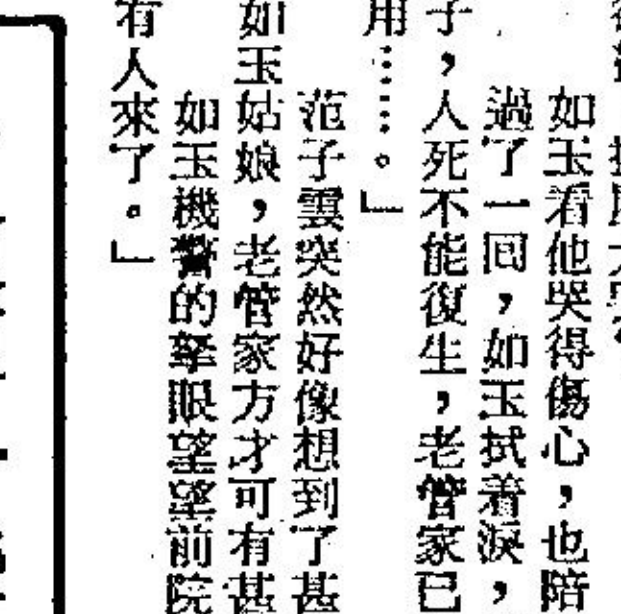 如玉看他哭得傷心，也陪
過了一囘，如玉拭着淚，
子，人死不能復生，老管家已
用……。」
范子雲突然好像想到了甚
如玉姑娘，老管家方才可有甚
如玉機警的擧眼望望前院
有人來了。」